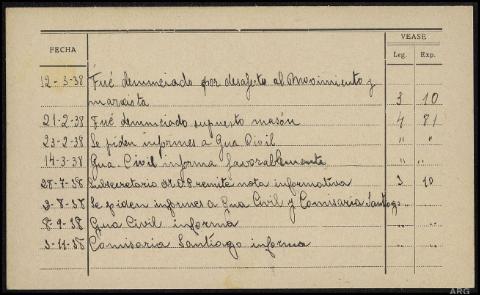 VEASE
FECHA
Leg. Exp.
12-3-38 Fué denunciado por desafecto al Movimiento y
marxista 3 10
21-2-38 Fué denunciado supuesto masón 4 81
23-2-38 Se piden informes a Gua Civil " "
14-3-38 Gua. Civil informa favorablemente " "
28-7-38 Subsecretario de O.P. remite nota informativa 3 10
3-8-38 Se piden informes a Gua Civil y Comisaria Santiago " "
8-9-38 Gua Civil informa " "
3-11-38 Comisaria Santiago informa " "
ARG